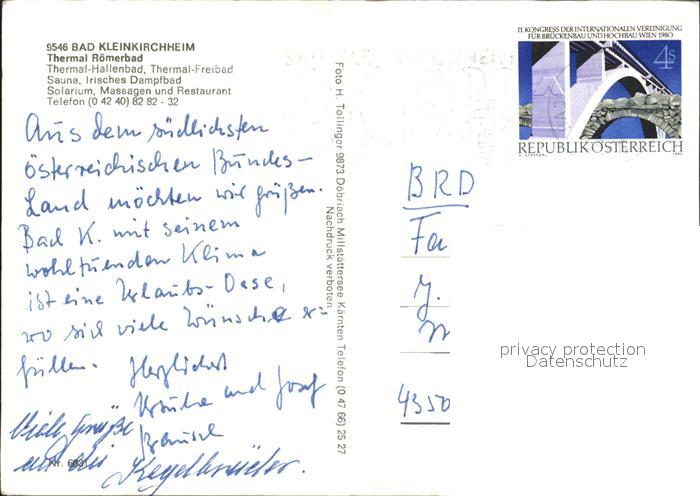 9546 BAD KLEINKIRCHHEIM
Thermal Römerbad
Thermal-Hallenbad, Thermal-Freibad
Sauna, Irisches Dampfbad
Solarium, Massagen und Restaurant
Telefon (0 42 40) 82 82 - 32
Aus dem südlichsten
österreichischen Bundes-
Land möchten wir grüßen.
Bad K. mit seinem
wohltuenden Klima
ist eine Urlaubs-Oase,
wo sich viele Wünsche er-
füllen.
Herzlichst
und Josef
Viele Grüße
an die Kegelbrüder.
Nr.
Foto H. Tollinger 9873 Döbriach Millstättersee Kärnten Telefon (0 47 66) 25 27
Nachdruck verboten.
11. KONGRESS DER INTERNATIONALEN VEREINIGUNG
FÜR BRÜCKENBAU UND HOCHBAU WIEN 1980
4s
REPUBLIK ÖSTERREICH
BRD
Fa
4350
privacy protection
Datenschutz